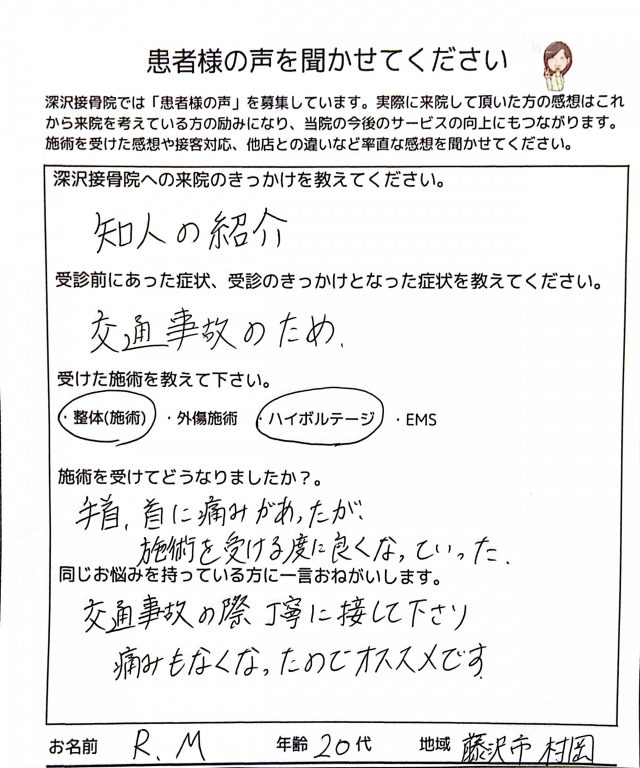 患者様の声を聞かせてください
深沢接骨院では「患者様の声」を募集しています。実際に来院して頂いた方の感想はこれ
から来院を考えている方の励みになり、当院の今後のサービスの向上にもつながります。
施術を受けた感想や接客対応、他店との違いなど率直な感想を聞かせてください。
深沢接骨院への来院のきっかけを教えてください。
知人の紹介
受診前にあった症状、受診のきっかけとなった症状を教えてください。
交通事故のため.
受けた施術を教えて下さい。
・整体(施術) ・外傷施術 ・ハイボルテージ ・EMS
施術を受けてどうなりましたか？。
手首、首に痛みがあったが、
施術を受ける度に良くなっていった.
同じお悩みを持っている方に一言おねがいします。
交通事故の際 丁寧に接して下さり
痛みもなくなったのでオススメです.
お名前 R.M 年齢 20代 地域 藤沢市 村岡